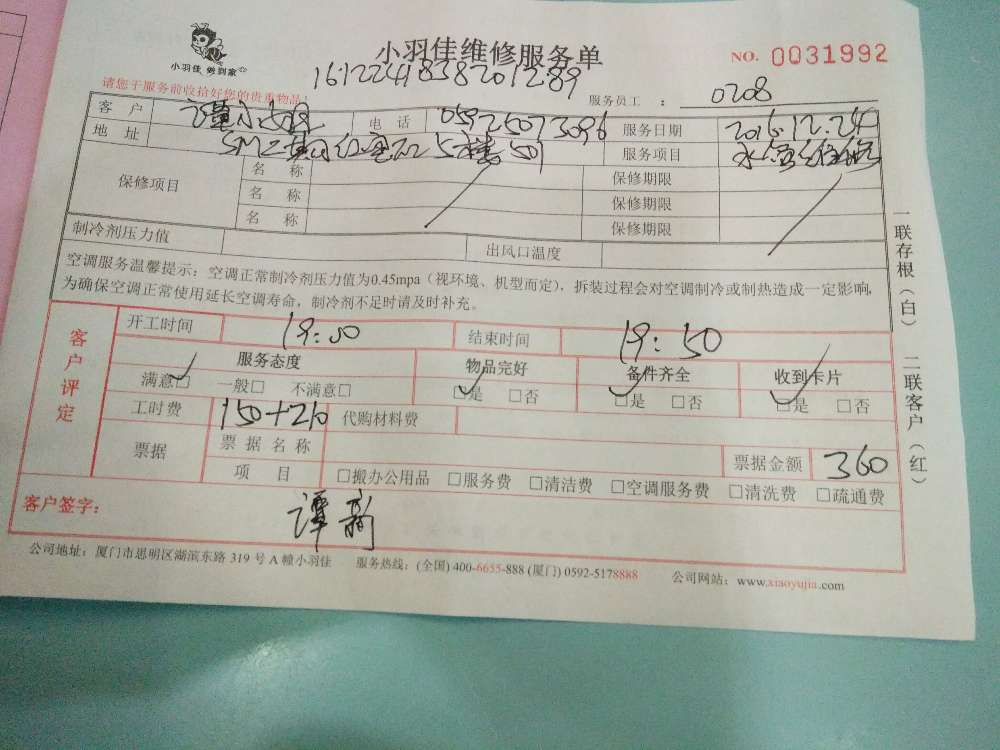 小羽佳维修服务单
NO. 0031992
小羽佳 做到家
1612241838201289
请您于服务前收拾好您的贵重物品!
服务员工 : 0208
客 户 谭小姐 电 话 05925073096 服务日期 2016.12.24
地 址 SM 5楼501 服务项目
保修项目 名 称 保修期限
名 称 保修期限
名 称 保修期限
制冷剂压力值 出风口温度
空调服务温馨提示:空调正常制冷剂压力值为0.45mpa(视环境、机型而定),拆装过程会对空调制冷或制热造成一定影响,
为确保空调正常使用延长空调寿命,制冷剂不足时请及时补充。
客户评定
开工时间 19:00 结束时间 19:50
服务态度 物品完好 备件齐全 收到卡片
满意□ 一般□ 不满意□ □是 □否 □是 □否 □是 □否
工时费 150+210 代购材料费
票据 票据名称 票据金额 360
项 目 □搬办公用品 □服务费 □清洁费 □空调服务费 □清洗费 □疏通费
客户签字: 谭新
公司地址:厦门市思明区湖滨东路 319 号 A 幢小羽佳 服务热线:(全国) 400-6655-888 (厦门) 0592-5178888 公司网站:www.xiaoyujia.com
一联存根(白) 二联客户(红)